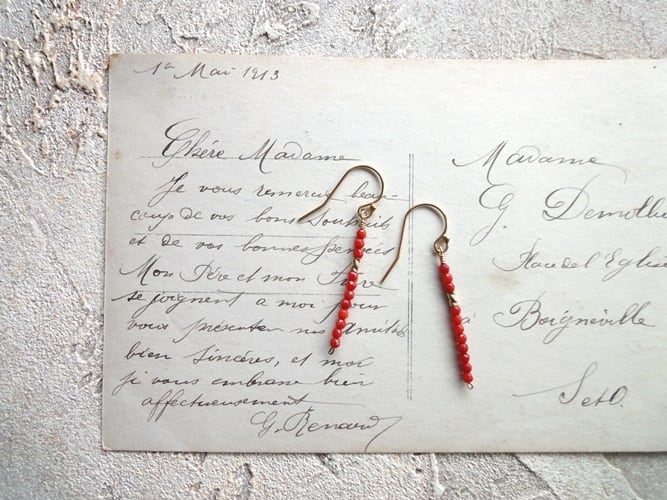 1er Mai 1913
Chère Madame
Je vous remercie beau-
coup de vos bons Souhaits
et de vos bonnes pensées
Mon Père et mon Frère
se joignent a moi pour
vous présenter nos amitiés
bien sincères, et moi
je vous embrasse bien
affectueusement
G. Renard
Madame
G.
Eglise
à Boigneville